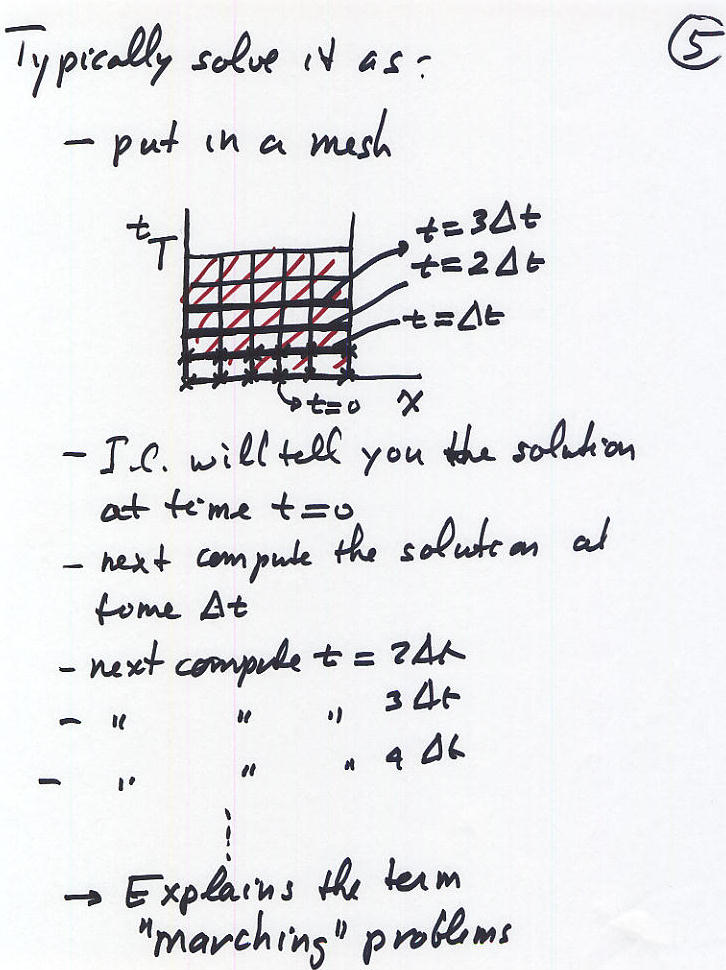 Typically solve it as:
5
- put in a mesh
t
T
t = 3Δt
t = 2Δt
t = Δt
t=0
x
- I.C. will tell you the solution
at time t=0
- next compute the solution at
tome Δt
- next compute t = 2Δt
- " " " 3Δt
- " " " 4 Δt
→ Explains the term
"marching" problems